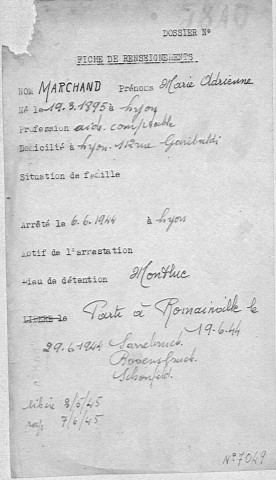 DOSSIER N°
FICHE DE RENSEIGNEMENTS
NOM MARCHAND Prénoms Marie Adrienne
Né le 19.3.1895 à Lyon
Profession aide comptable
Domicilié à Lyon. rue Garibaldi
Situation de famille
Arrêté le 6.6.1944 à Lyon
Motif de l'arrestation
Lieu de détention Montluc
LIBERE le Partie à Romainville le
19.6.44
29.6.1944 Sarrebruck
Schonfeld.
libérée 8/5/45
rap. 7/6/45
N°7049